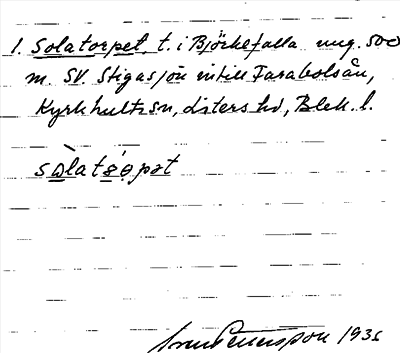 1. Solatorpet, t. i Björkefalla ung. 500
m. SV. Stigasjön intill Farabolsån,
Kyrkhults sn, Listers hd, Blek. l.
Sven Petersson 193